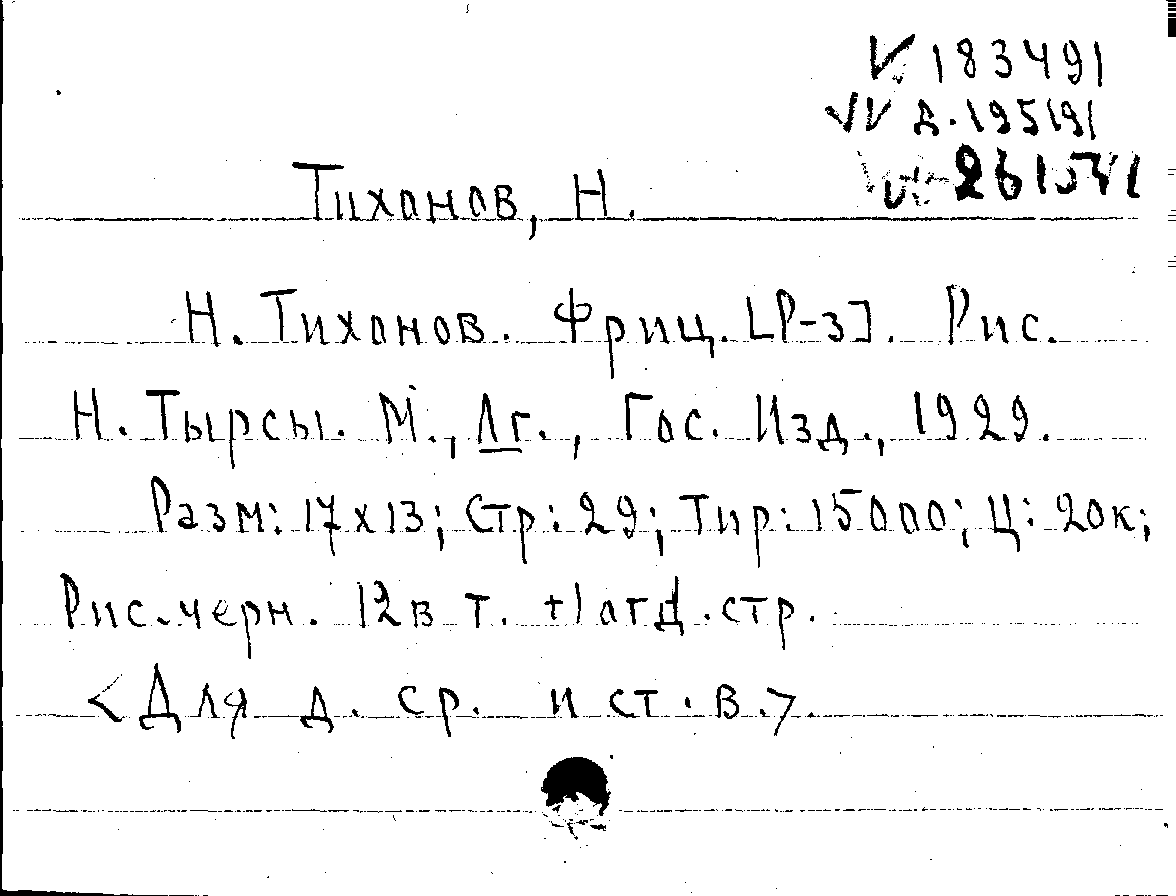 V 183491
VV д. 195191
261541
Тихонов, Н.
Н. Тихонов. Фриц. [Р-з]. Рис.
Н. Тырсы. М., Лг., Гос. Изд., 1929.
Разм: 17х13; Стр: 29; Тир: 15000; Ц: 20к;
Рис. черн. 12 в т. +1 отд. стр.
<Для д. ср. и ст. в.>